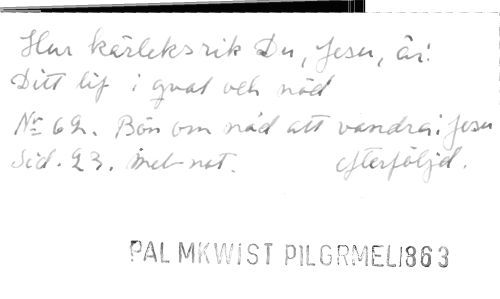 Hur kärleksrik Du, Jesu, är!
Ditt lif i qval och nöd
Nr 62. Bön om nåd att vandra i Jesu
Sid. 23. Mel. not. efterföljd.
PALMKWIST PILGRMEL 1863